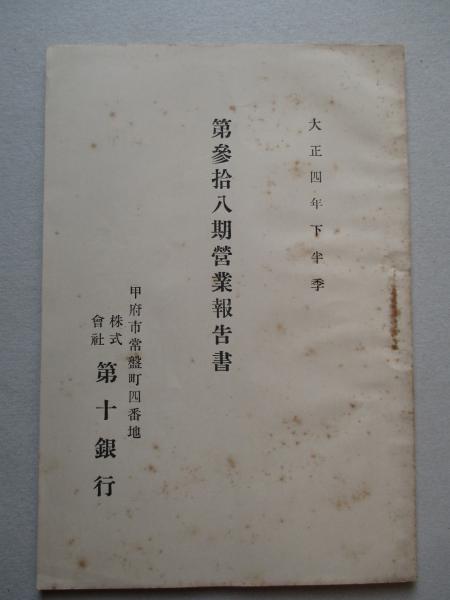 大正四年下半季
第參拾八期營業報告書
甲府市常盤町四番地
株式會社第十銀行